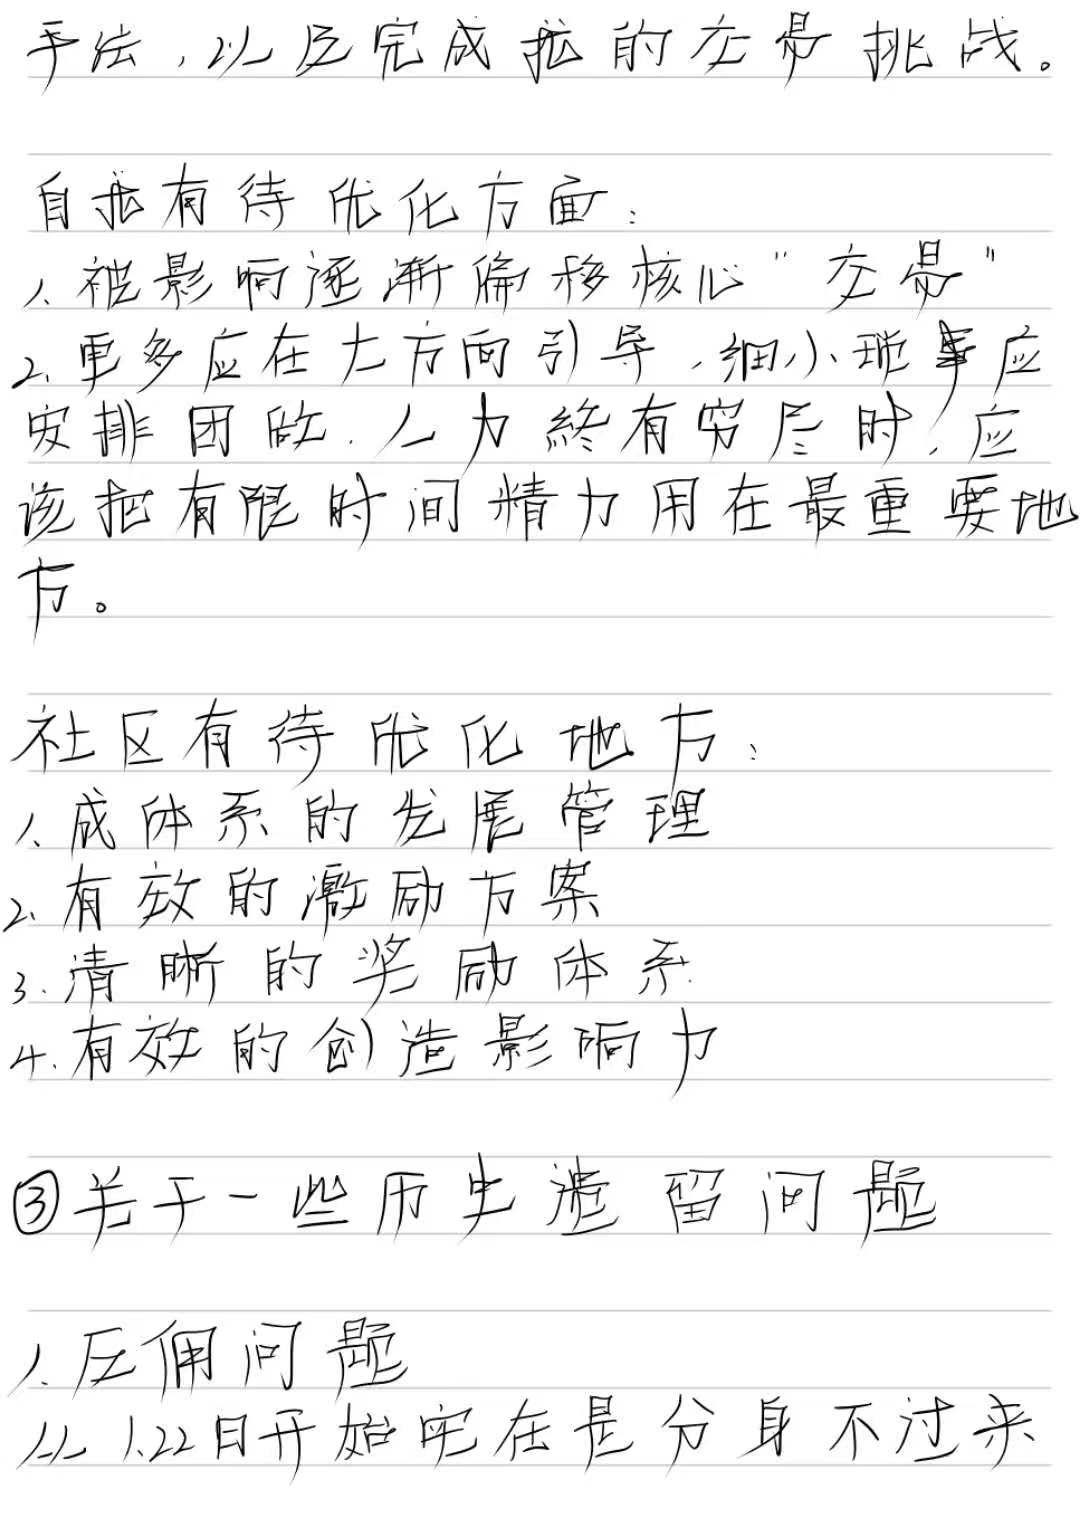 手法，以及完成我的交易挑战。
自我有待优化方面：
1. 被影响逐渐偏移核心"交易"
2. 更多应在大方向引导，细小琐事应
安排团做．人力終有穷尽时，应
该把有限时间精力用在最重要地
方。
社区有待优化地方：
1. 成体系的发展管理
2. 有效的激励方案
3. 清晰的奖励体系
4. 有效的创造影响力
③关于一些历史遗留问题
1. 反佣问题
从1.22日开始实在是分身不过来